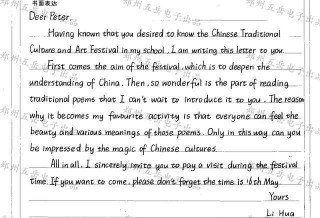 书面表达
Dear Peter,
Having known that you desired to know the Chinese Traditional
Culture and Art Festival in my school, I am writing this letter to you.
First comes the aim of the festival, which is to deepen the
understanding of China. Then, so wonderful is the part of reading
traditional poems that I can't wait to introduce it to you. The reason
why it becomes my favourite activity is that everyone can feel the
beauty and various meanings of those poems. Only in this way can you
be impressed by the magic of Chinese cultures.
All in all, I sincerely invite you to pay a visit during the festival
time. If you want to come, please don't forget the time is 16th May.
Yours
Li Hua